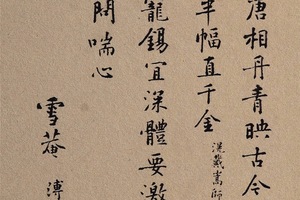 唐相丹青映古今
半幅直千金
滉戴嵩師
寵錫宜深體要激
問喘心
雪菴 溥